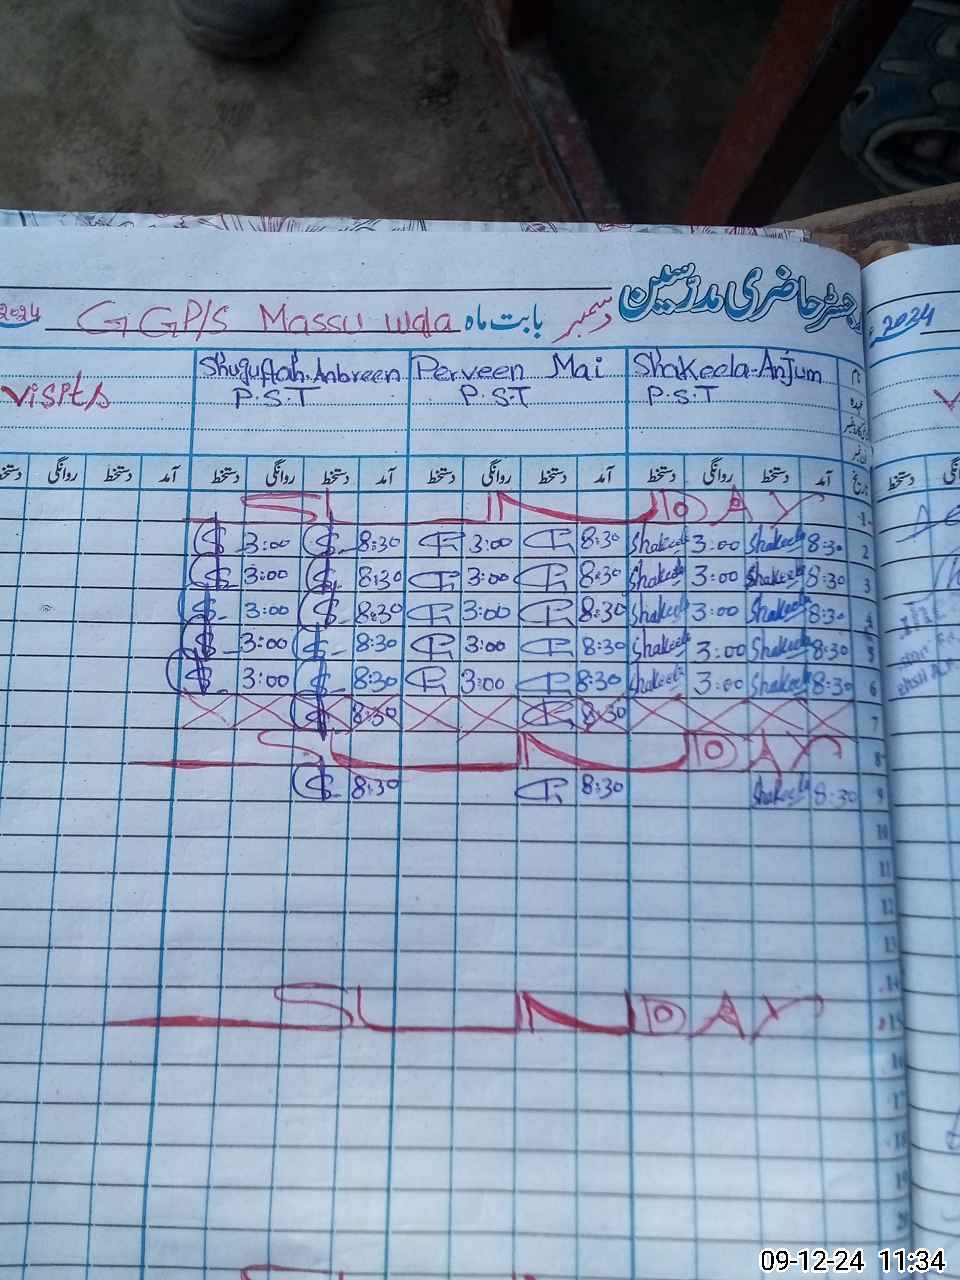 رجسٹر حاضری مدرسین
بابت ماہ دسمبر GGP/S Massu wala 2024
2034
Shakeela-Anjum Perveen Mai Shuguftah Anbreen
P.S.T P.S.T P.S.T visits
نام
عہدہ
تاریخ آمد دستخط روانگی دستخط آمد دستخط روانگی دستخط آمد دستخط روانگی دستخط آمد دستخط روانگی دستخط
1 SUNDAY
2 8:30 Shakeela 3:00 Shakeela 8:30 P 3:00 P 8:30 S 3:00 S
3 8:30 Shakeela 3:00 Shakeela 8:30 P 3:00 P 8:30 S 3:00 S
4 8:30 Shakeela 3:00 Shakeela 8:30 P 3:00 P 8:30 S 3:00 S
5 8:30 Shakeela 3:00 Shakeela 8:30 P 3:00 P 8:30 S 3:00 S
6 8:30 Shakeela 3:00 Shakeela 8:30 P 3:00 P 8:30 S 3:00 S
7 8:30 P 8:30 S
8 SUNDAY
9 8:30 Shakeela 8:30 P 8:30 S
10
11
12
13
14
15 SUNDAY
16
17
18
19
20
09-12-24 11:34